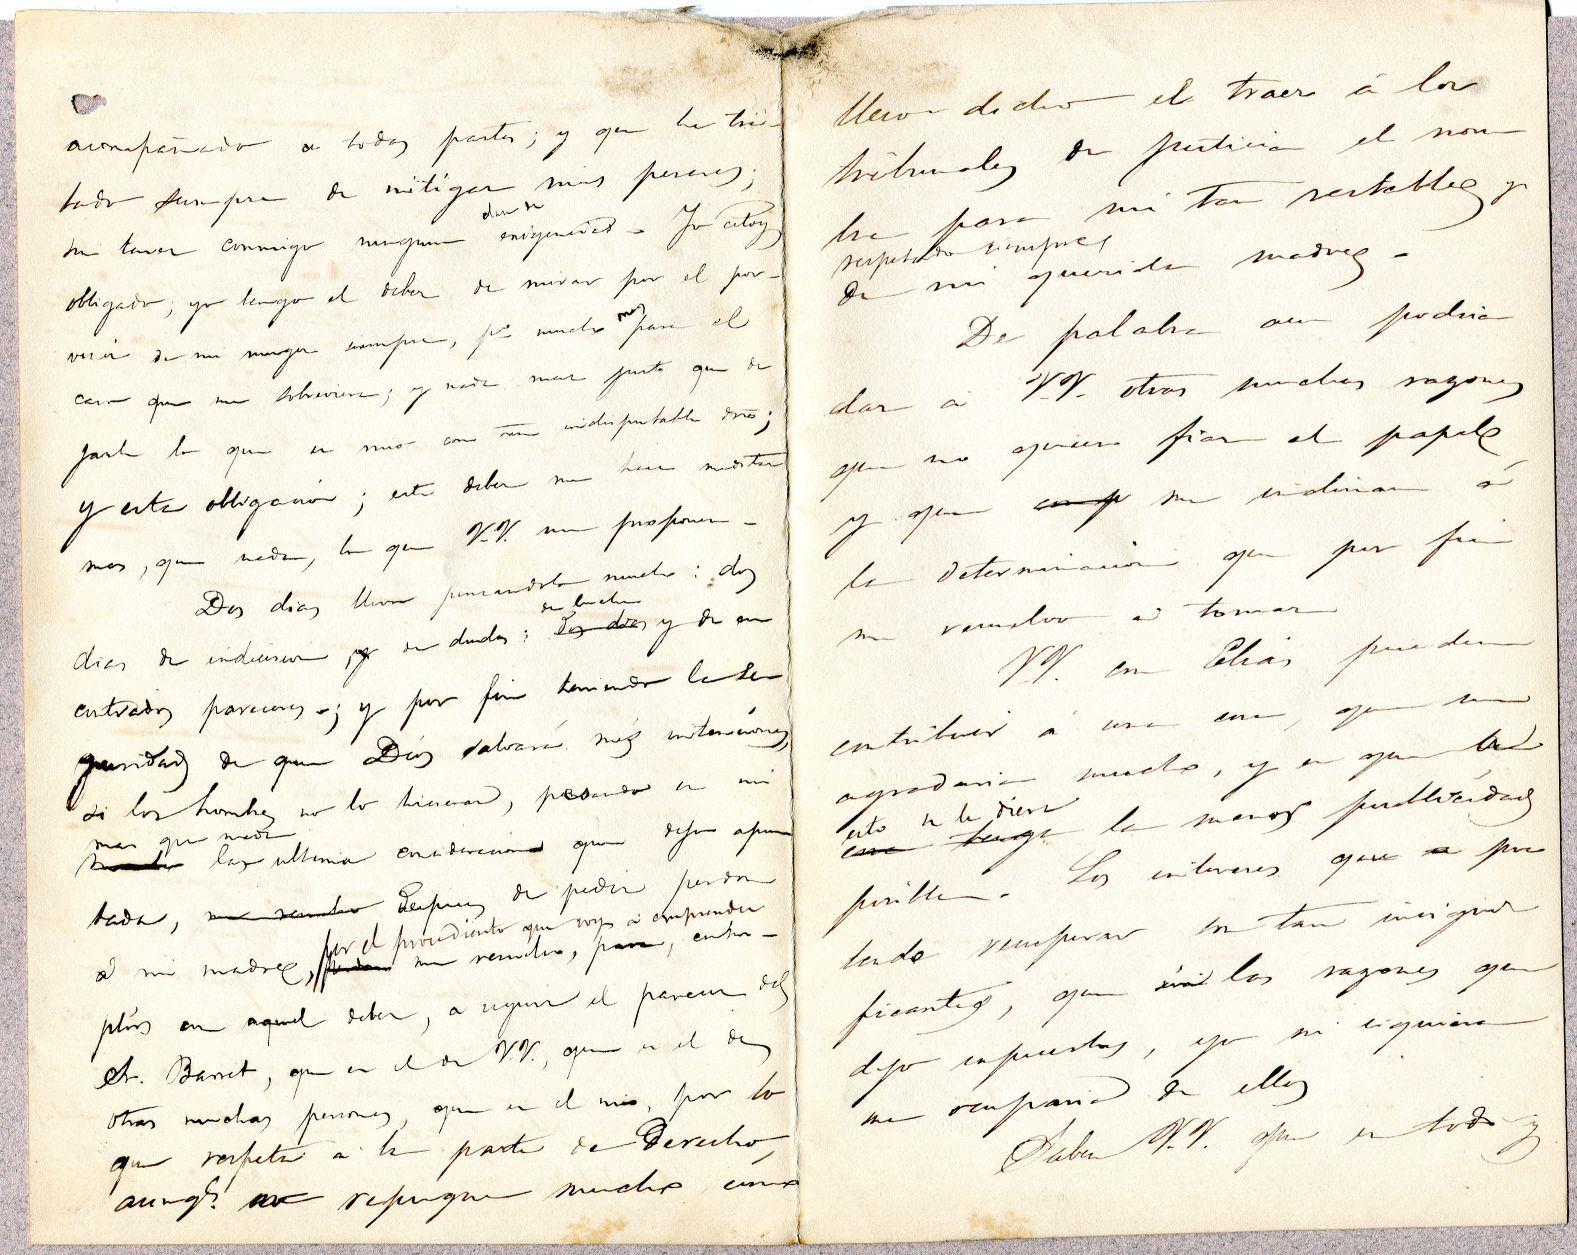 acompañado a todas partes; y que ha tra-
tado siempre de mitigar mis pesares;
sin tener conmigo ninguna exigencia. Yo estoy
obligado, yo tengo el deber de mirar por el por-
venir de mi muger siempre, pr mucho mas para el
caso que me sobreviva; y nada mas justo que de
jarle lo que es mio con un indisputable dro;
y esta obligación; este deber me hace meditar
mas, que nada, lo que V.V. me proponen.
Dos dias llevo pensandolo mucho: dos
dias de indecision y de dudas: de lucha y de en
contrados pareceres; y por fin teniendo la se
guridad de que Dios salvará mis intenciones,
si los hombres no lo hicieran, pesando en mi
mas que nada las ultima consideracion que dejo apun
tada, despues de pedir perdon
á mi madre, por el procedimiento que voy á emprender
me resuelvo, para, cumplir
con aquel deber, a seguir el parecer del
Sr. Barret, que es el de VV., que es el de
otras muchas personas, que es el mio, por lo
que respeta a la parte de Derecho,
aunqe. me repugne mucho, como
llevo dicho el traer á los
tribunales de justicia el nom
bre para mi tan respetable y
respetado siempre
de mi querida madre.
De palabra aun podria
dar á V.V. otras muchas razones
que no quiero fiar al papel
y que me inclinan á
la determinacion que por fin
me resuelvo á tomar
VV. con Elias pueden
contribuir á una cosa, que me
agradaria mucho, y es que á
esto se le diera la menos publicidad
posible. Los intereses que pre
tendo recuperar son tan insigni
ficantes, que sin las razones que
dejo expuestas, yo ni siquiera
me ocuparia de ellos
Saben V.V. que en todo y